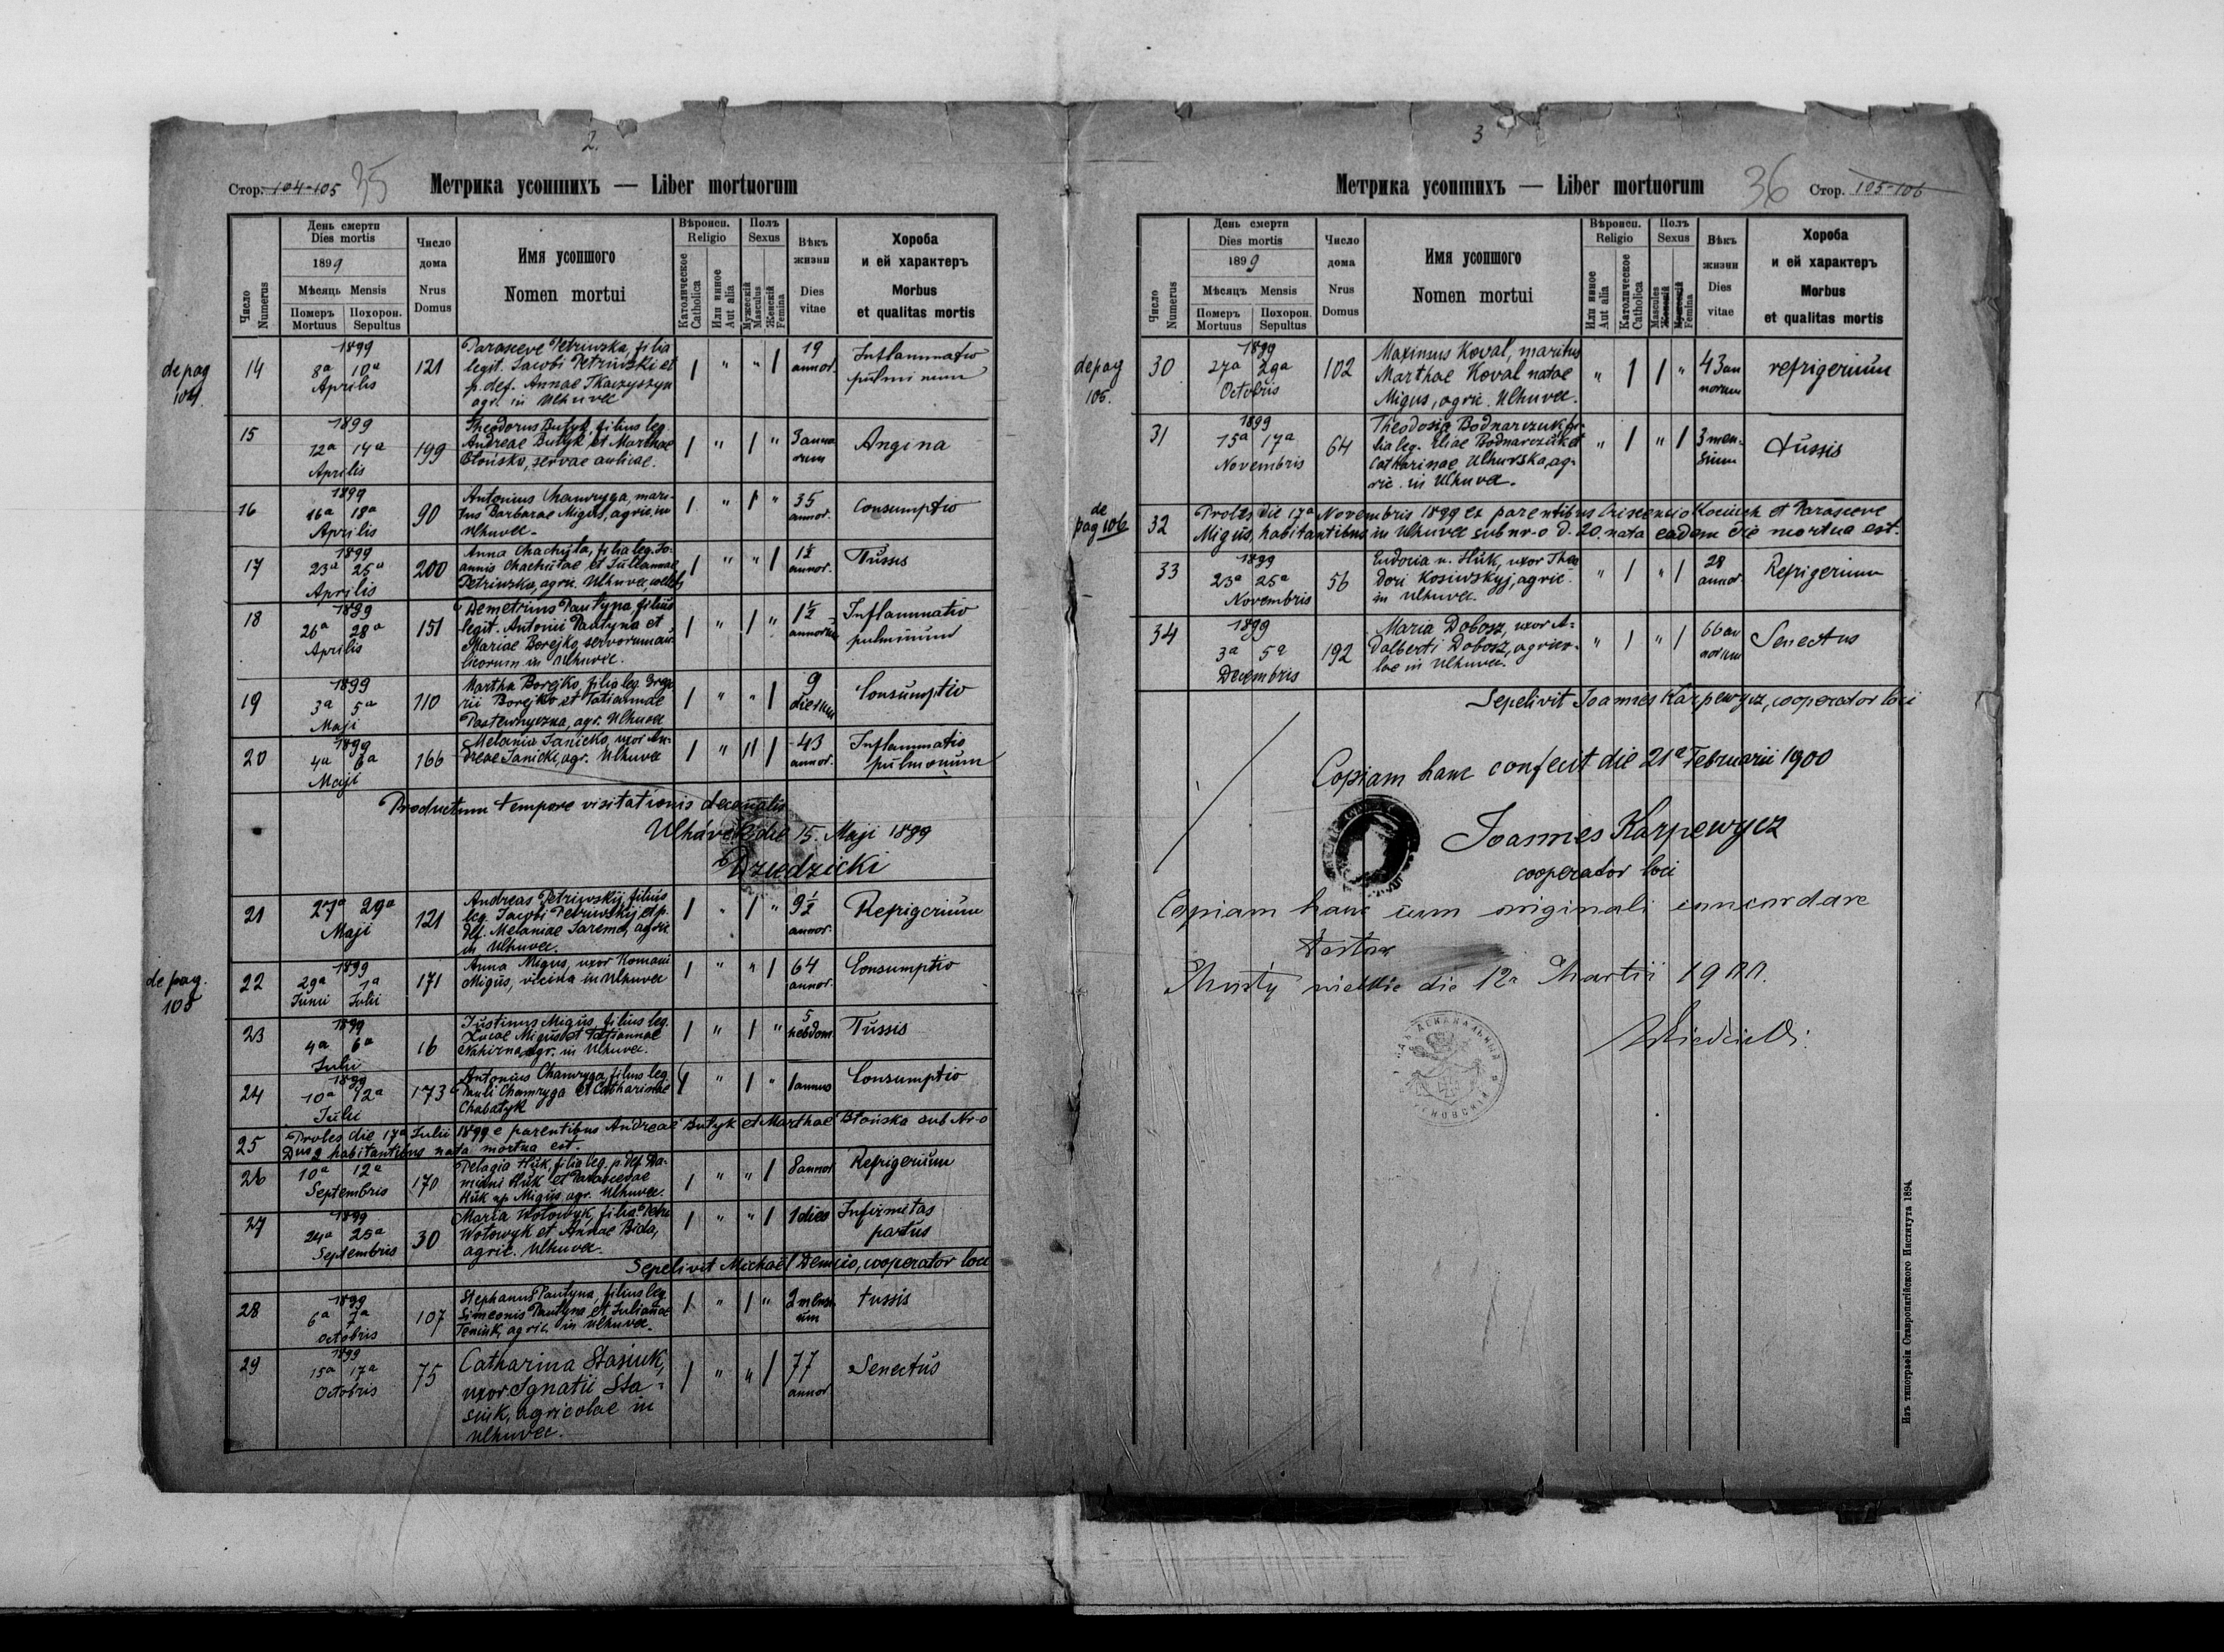 2.
Стор. 104-105 35
Метрика усопшихъ — Liber mortuorum
Число
Numerus
День смерти
Dies mortis
1899
Мѣсяць Mensis
Померъ
Mortuus
Похорон.
Sepultus
Число
дома
Nrus
Domus
Имя усопшого
Nomen mortui
Вѣроисп.
Religio
Католическое
Catholica
Или инное
Aut alia
Полъ
Sexus
Мужескій
Masculus
Женскій
Femina
Вѣкъ
жизни
Dies
vitae
Хороба
и ей характеръ
Morbus
et qualitas mortis
de pag
104.
14
1899
8a 10a
Aprilis
121
Parasceve Petriwska, filia
legit. Iacobi Petriwski et
p. def. Annae Tkaczyszyn
agr. in Uhuvec
1 " " 1
19
annor.
Inflammatio
pulminum
15
1899
12a 14a
Aprilis
199
Theodorus Butyk, filius leg.
Andreae Butyk et Marthae
Błońska, servae aulicae.
1 " 1 "
3 anno
rum
Angina
16
1899
16a 18a
Aprilis
90
Antonius Chamryga, mari-
tus Barbarae Migus, agric. in
Ulhuvec.
1 " 1 "
35
annor.
Consumptio
17
1899
23a 25a
Aprilis
200
Anna Chachuta, filia leg. Jo-
annis Chachutae et Iulianae
Petriwska, agric. Ulhuvec, coelebs
1 " " 1
1½
annor.
Tussis
18
1899
26a 28a
Aprilis
151
Demetrius Pautyna filius
legit. Antonii Pautyna et
Mariae Borejko servorum au-
licorum in Ulhuvec.
1 " 1 "
1½
annorum
Inflammatio
pulminum
19
1899
3a 5a
Maji
110
Martha Borejko, filia leg. Grego
rii Borejko et Tatiannae
Pastewnyczna, agr. Ulhuvec
1 " " 1
9
dierum
Consumptio
20
1899
4a 6a
Maji
166
Melania Janicka, uxor An-
dreae Janicki, agr. Ulhuvec
1 " " 1
43
annor.
Inflammatio
pulmonum
Productum tempore visitationis decanalis
Ulhuvek die 15. Maji 1899
Dziedzicki
21
27a 29a
Maji
121
Andreas Petriwskij, filius
leg. Iacobi Petriwskij et p.
def. Melaniae Jarema, agric.
in Ulhuvec.
1 " 1 "
9½
annor.
Refrigerium
de pag.
105
22
1899
29a 1a
Iunii Iulii
171
Anna Migus, uxor Romani
Migus, vicina in Ulhuvec
1 " " 1
64
annor.
Consumptio
23
1899
4a 6a
Iulii
16
Iustinus Migus, filius leg.
Lucae Migus et Tatiannae
Nahirna, agr. in Ulhuvec.
1 " 1 "
5
hebdom
Tussis
24
1899
10a 12a
Iulii
173
Antonius Chamryga, filius leg.
Pauli Chamryga et Catharinae
Chabatyk
1 " 1 "
1 annus
Consumptio
25
Proles die 17a Iulii 1899 e parentibus Andreae Butyk et Marthae Błońska sub Nr-o
habitantibus nata mortua est.
26
10a 12a
Septembris
170
Pelagia Huk, filia leg. p. def. Da-
miani Huk et Parascevae
Huk Migus, agr. Ulhuvec.
1 " " 1
8 annor
Refrigerium
27
1899
24a 25a
Septembris
30
Maria Wołowyk, filia Petri
Wołowyk et Annae Bida,
agric. Ulhuvec.
1 " " 1
1 dies
Infirmitas
partus
Sepelivit Michael Demcio, cooperator loci
28
1899
6a 7a
Octobris
107
Stephanus Pautyna, filius leg.
Simeonis Pautyna et Iulianae
Teniuk, agric. in Ulhuvec.
1 " 1 "
2 mens
ium
tussis
29
1899
15a 17a
Octobris
75
Catharina Stasiuk,
uxor Ignatii Sta-
siuk, agricolae in
Ulhuvec.
1 " " 1
77
annor
Senectus
3
Метрика усопшихъ — Liber mortuorum
36 Стор. 105-106
Число
Numerus
День смерти
Dies mortis
1899
Мѣсяцъ Mensis
Померъ
Mortuus
Похорон.
Sepultus
Число
дома
Nrus
Domus
Имя усопшого
Nomen mortui
Вѣроисп.
Religio
Или инное
Aut alia
Католическое
Catholica
Полъ
Sexus
Masculus
Женскій
Мужескій
Femina
Вѣкъ
жизни
Dies
vitae
Хороба
и ей характеръ
Morbus
et qualitas mortis
de pag
105.
30
1899
27a 29a
Octobris
102
Maximus Koval, maritus
Marthae Koval natae
Migus, agric. Ulhuvec.
" 1 1 "
43 an
norum
refrigerium
31
1899
15a 17a
Novembris
64
Theodosia Bodnarczuk fi-
lia leg. Eliae Bodnarczuk et
Catharinae Ulhurska, ag-
ric. in Ulhuvec.
" 1 " 1
3 men-
sium
tussis
de
pag 106
32
Proles die 17a Novembris 1899 ex parentibus Kociuch et Parasceve
Migus, habitantibus in Ulhuvec sub nr-o d. 20. nata eadem die mortua est.
33
1899
23a 25a
Novembris
56
Eudocia n. Huk, uxor Theo
dori Kosiwskyj, agric.
in Ulhuvec.
" 1 " 1
28
annor
Refrigerium
34
1899
3a 5a
Decembris
192
Maria Dobosz, uxor A-
dalberti Dobosz, agrico-
lae in Ulhuvec.
" 1 " 1
66 an
norum
Senectus
Sepelivit Joannes Karpewycz, cooperator loci
Copiam hanc confecit die 21a Februarii 1900
Joannes Karpewycz
cooperator loci
Copiam hanc cum originali concordare
testor
die 12a Martii 1900.
Изъ типографіи Ставропигійского Института 1894.